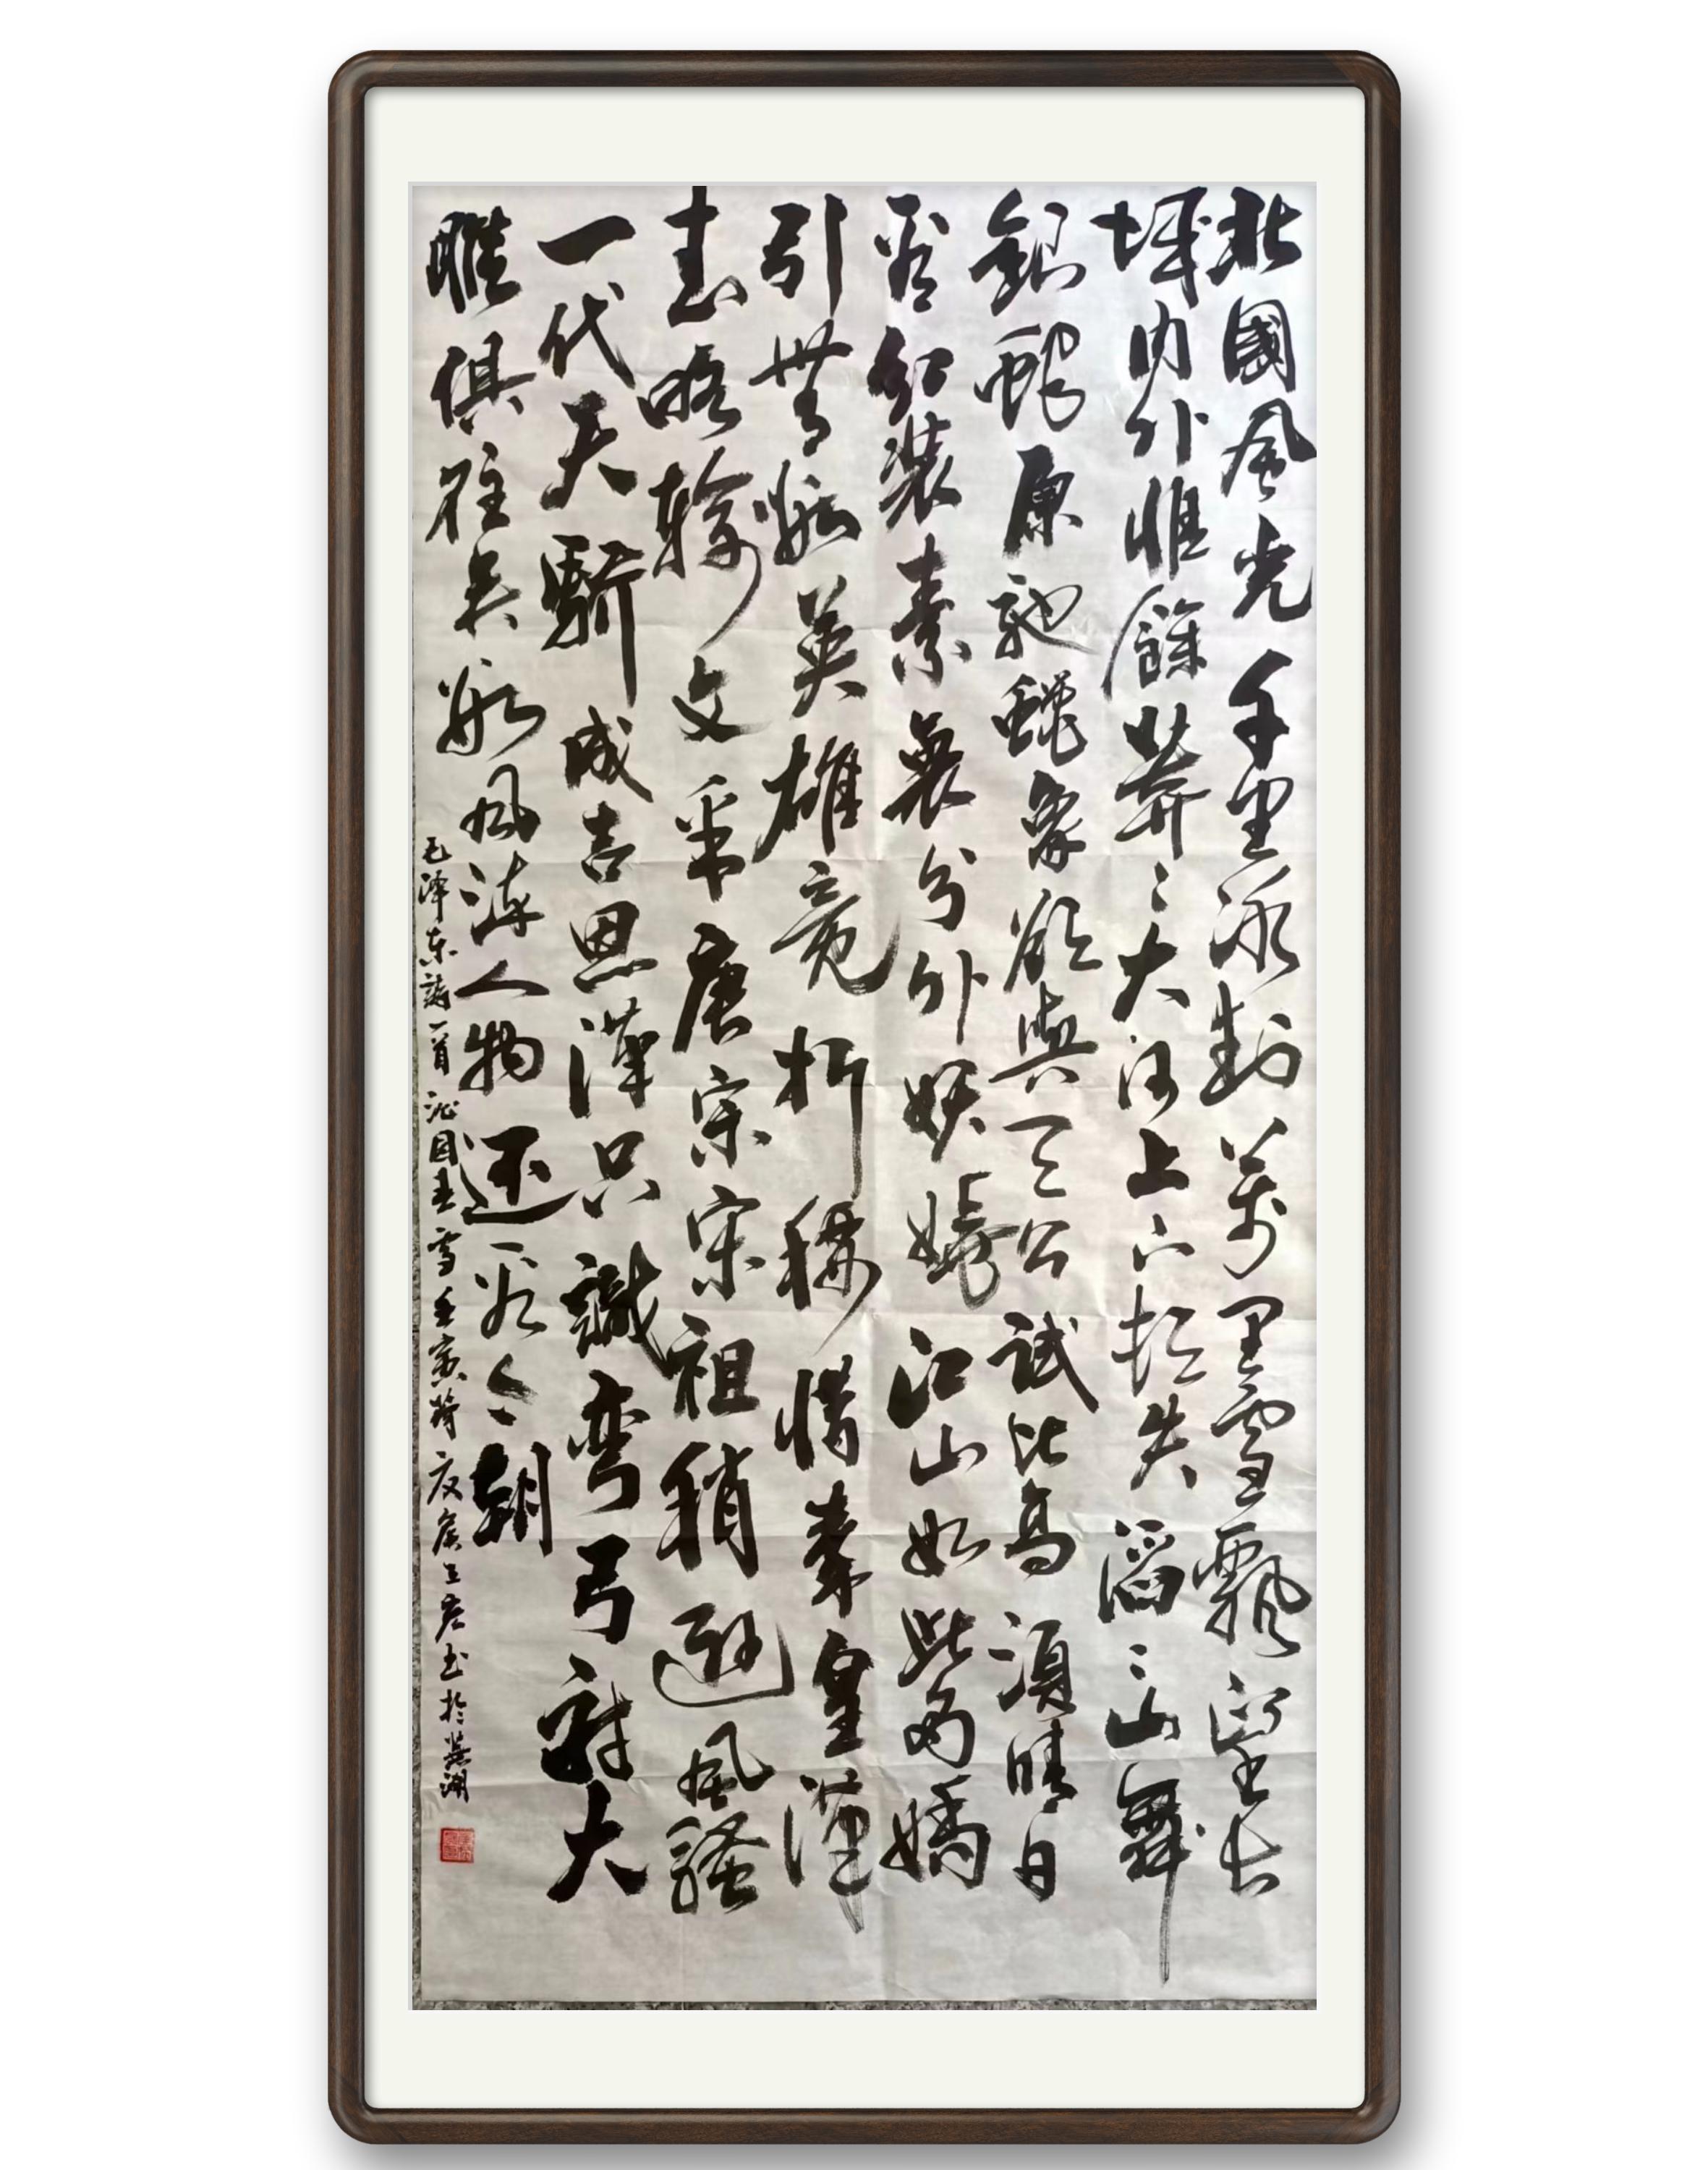 北國風光千里冰封萬里雪飄望長
城内外惟餘莽々大河上下頓失滔々山舞
銀蛇原馳蠟象欲與天公試比高須晴日
看紅裝素裹分外妖嬈江山如此多嬌
引無數英雄竞折腰惜秦皇漢
武略輸文采唐宗宋祖稍遜風騷
一代天驕成吉思漢只識彎弓射大
雕俱往矣數風流人物還看今朝
毛泽东詩一首沁园春雪壬寅荷夏 書於蕪湖